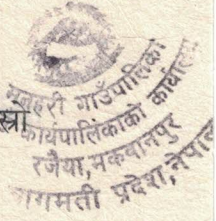 मनहरी गाउँपालिका
स्रो
कार्यपालिकाको कार्यालय
रजैया, मकवानपुर
बागमती प्रदेश, नेपाल